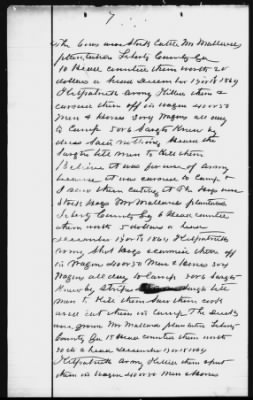 7
The Cows was Stock Cattle Mr Mallards
plantation Liberty County Ga
10 Head counted them worth 20
dollars a head December 13 to 15 1864
Kilpatrick Army Killed them &
carried them off in wagon 40 or 50
Men & Horses 3 or 4 Wagons all any
to Camp 5 or 6 Sargts Knew by
dress said nothing Heard the
Sargts tell men to Kill them
Believe it was for use of army
because it was carried to Camp &
I saw them eating it The Hogs was
Stock Hogs Mr Mallards plantation
Liberty County Ga 6 Head counted
them worth 5 dollars a head
December 13 to 15 1864 Kilpatricks
Army Shot Hogs carried them off
in Wagons 40 or 50 Men & Horses 3 or 4
Wagons all any to Camp 5 or 6 Sargts
Knew by stripes Sargts tell
men to Kill them Saw them cook
and eat them in Camp The Ducks
was grown Mr Mallards plantation Liberty
County Ga 15 Head counted them worth
a head December 13 to 15 1864
Kilpatrick Army Killed them put
them in Wagon 40 or 50 Men & Horses